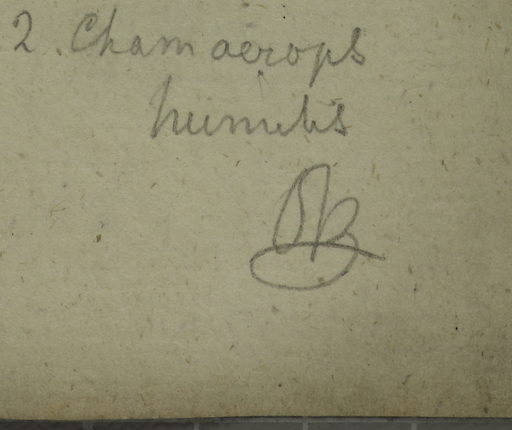 2. Chamaerops
humilis